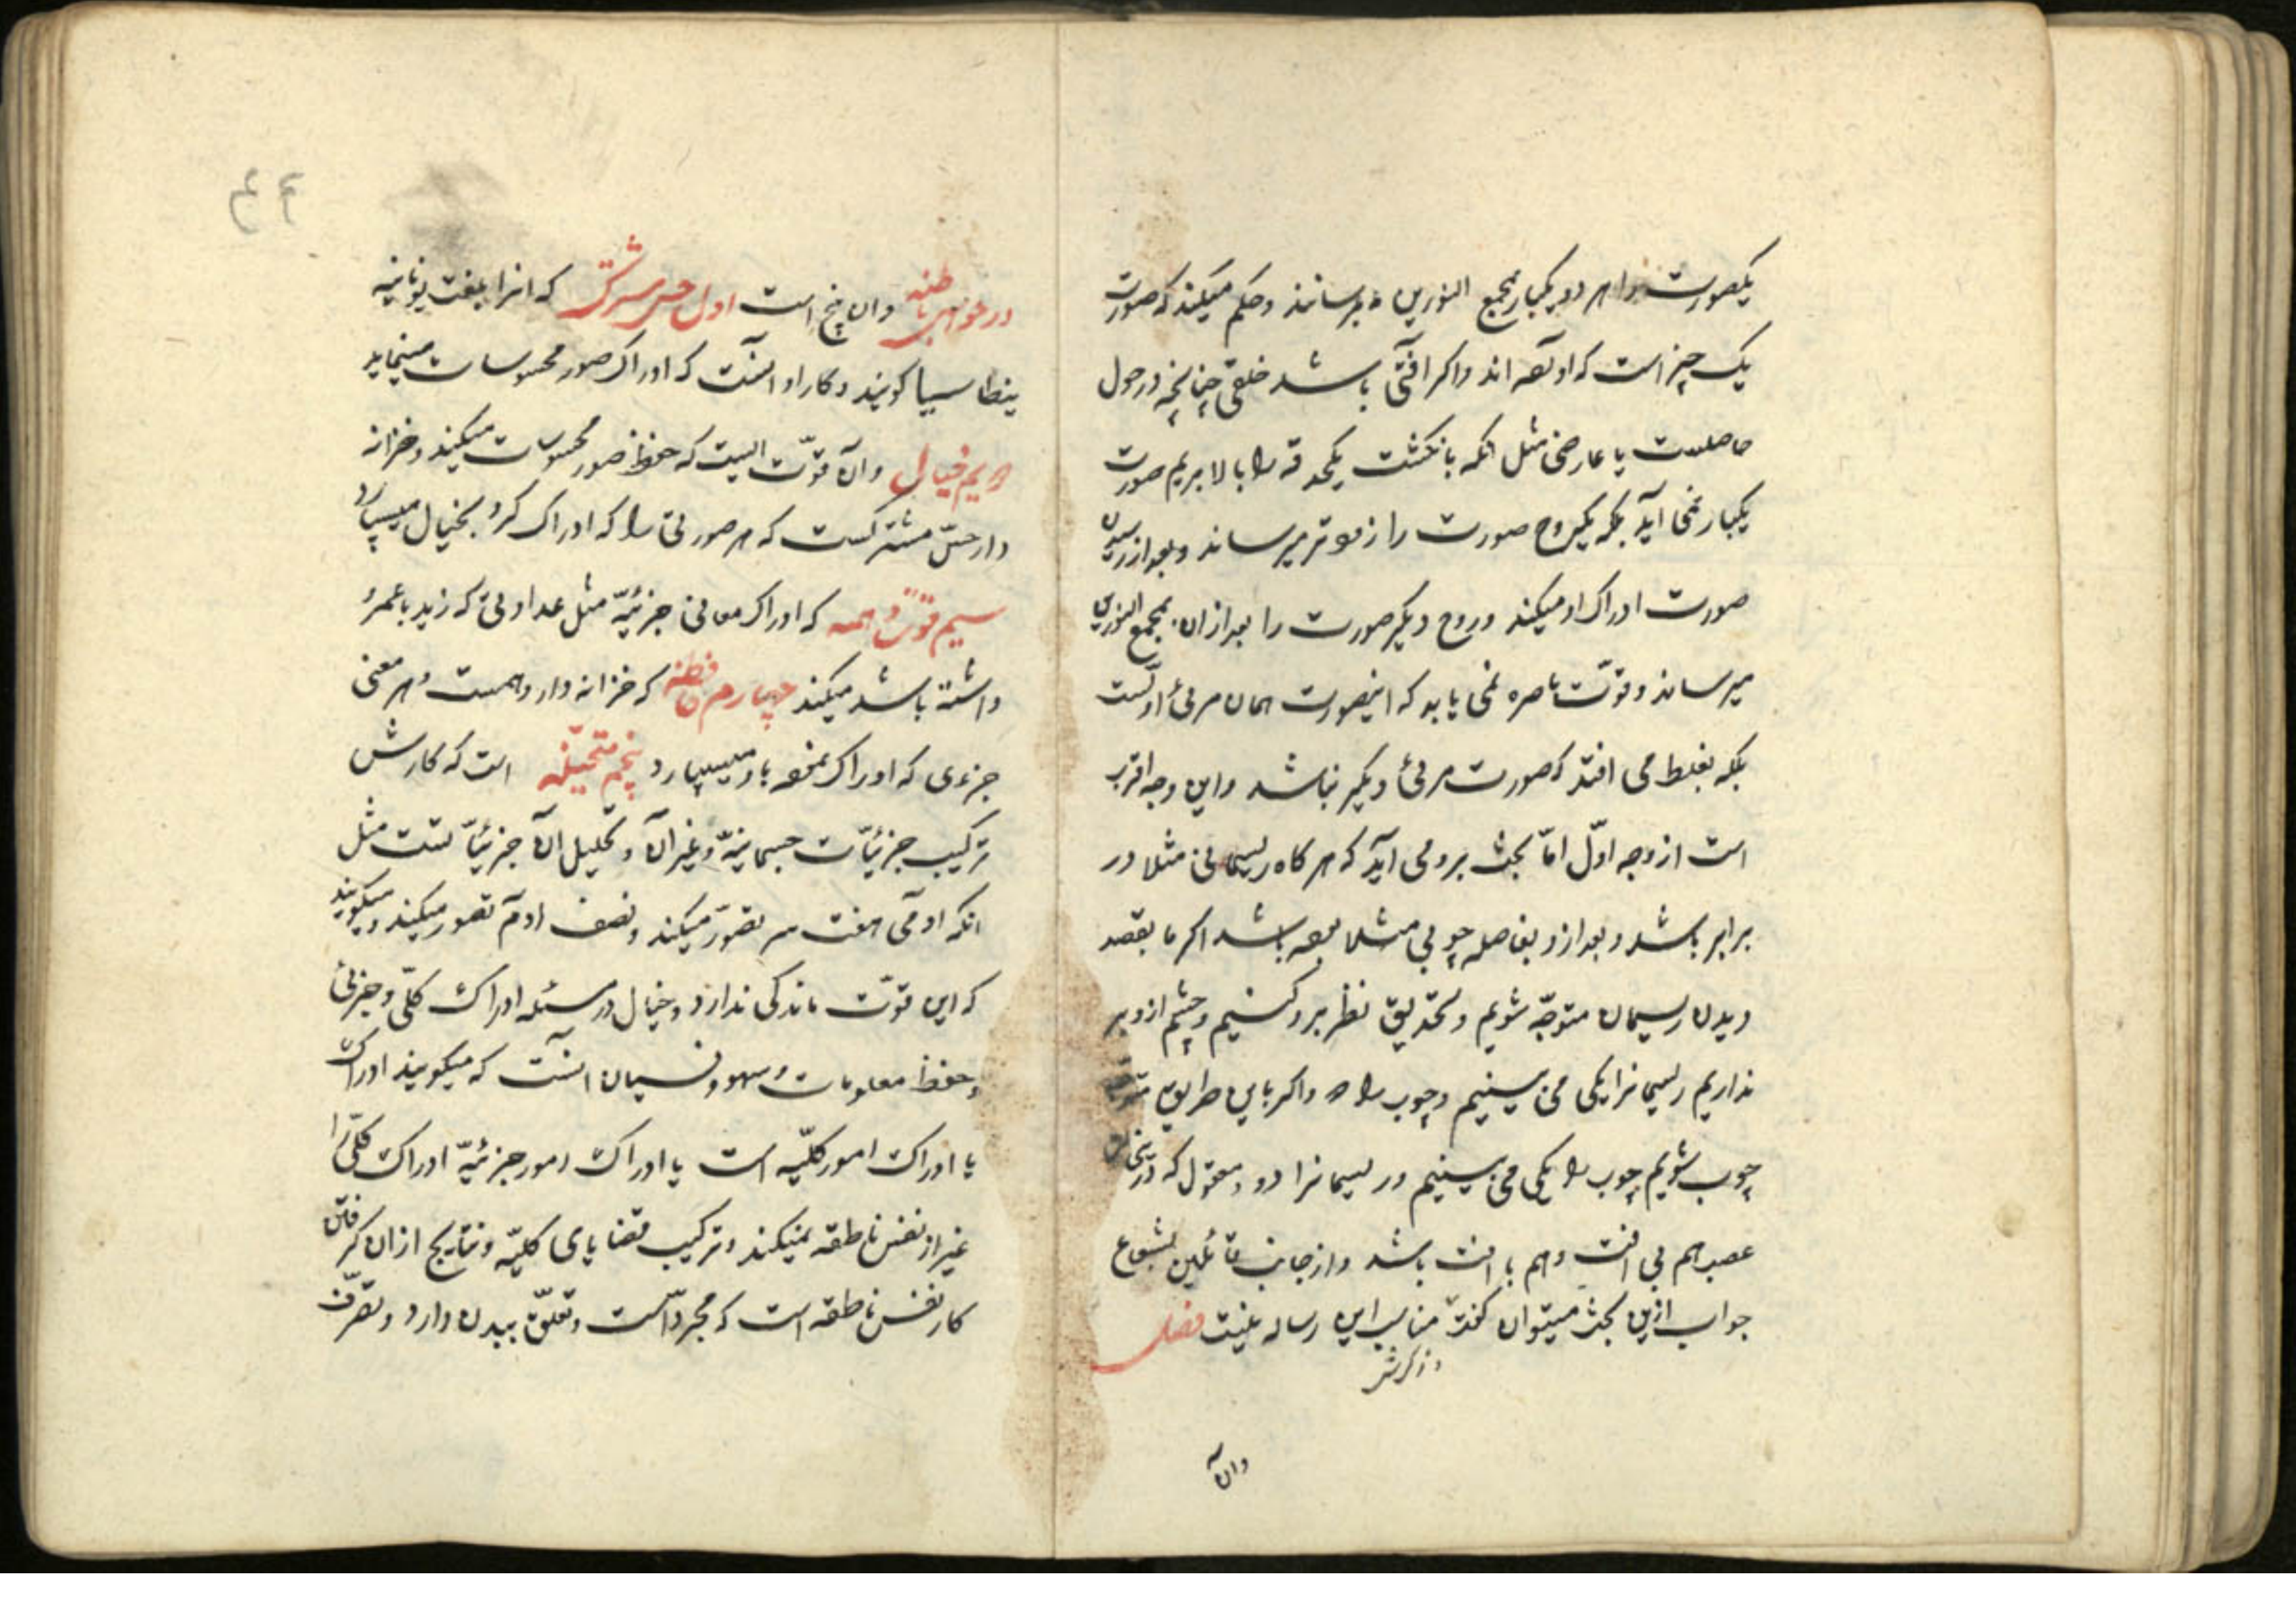 یکصورت را هر دو یکبار بمجمع النورین میرسانند و حکم میکند که صورت
یک چیز است که او بوده اند و اکر آفتی باشد خلقی چنانچه در حول
حاصلست یا عارضی مثل انکه بانکشت یکحدقه را بالا بریم صورت
یکبار نمی آید بلکه یکروح صورت را زودتر میرساند و بعد از رسیدن
صورت ادراک او میکند و روح دیکر صورت را بعد از ان بمجمع النورین
میرساند و قوّت باصره نمی یابد که اینصورت همان مرئی اوّلست
بلکه بغلط می افتد که صورت مرئی دیکر باشد و این وجه اقرب
است از وجه اوّل امّا بحث برو می آید که هر کاه ریسمانی مثلا در
برابر باشد و بعد ازو بفاصله چوبی مثلا بوده باشد اکر ما بقصد
دیدن ریسمان متوجّه شویم و تحدیق نظر برو کنیم و چشم ازو بر
نداریم ریسمانرا یکی می بینیم و چوب را ۲ و اکر باین طریق متوجّه
چوب شویم چوب را یکی می بینیم و ریسمانرا دو و معقول که
عصب هم بی آفت و هم با آفت باشد و از جانب قائلین بشعاع
جواب ازین بحث میتوان کفت مناسب این رساله نیست فصل
و ذکرش
وان
در حواس باطنه وان پنج است اول حس مشترک که انرا بلغت یونانیه
بنطاسیا کویند و کار او آنست که ادراک صور محسوسات مینماید
دویم خیال وآن قوّت ایست که حفظ صور محسوسات میکند و خزانه
دار حسّ مشترکست که هر صورتی را که ادراک کرد بخیال میسپارد
سیم قوّت واهمه که ادراک معانی جزئیّه مثل عداوتی که زید با عمرو
داشته باشد میکند چهارم حافظه که خزانه دار وهمست و هر معنی
جزءی که ادراک نموده باو میسپارد پنجم متخیّله است که کارش
ترکیب جزئیّات جسمانیّه و غیر آن و تحلیل ان جزئیّاتست مثل
انکه آدمی هفت سر تصوّر میکند و نصف ادم تصور میکند و میکویند
که این قوّت ماندکی ندارد و خیال در مسئله ادراک کلّی و جزئی
و حفظ معلومات و سهو و نسیان انست که میکویند ادراک
یا ادراک امور کلّیه است یا ادراک امور جزئیّه ادراک کلّی را
غیر از نفس ناطقه نمیکند و ترکیب قضایای کلیّه و نتایج ازان کرفتن
کار نفس ناطقه است که مجرّد است و تعلّق ببدن دارد و تصرّف